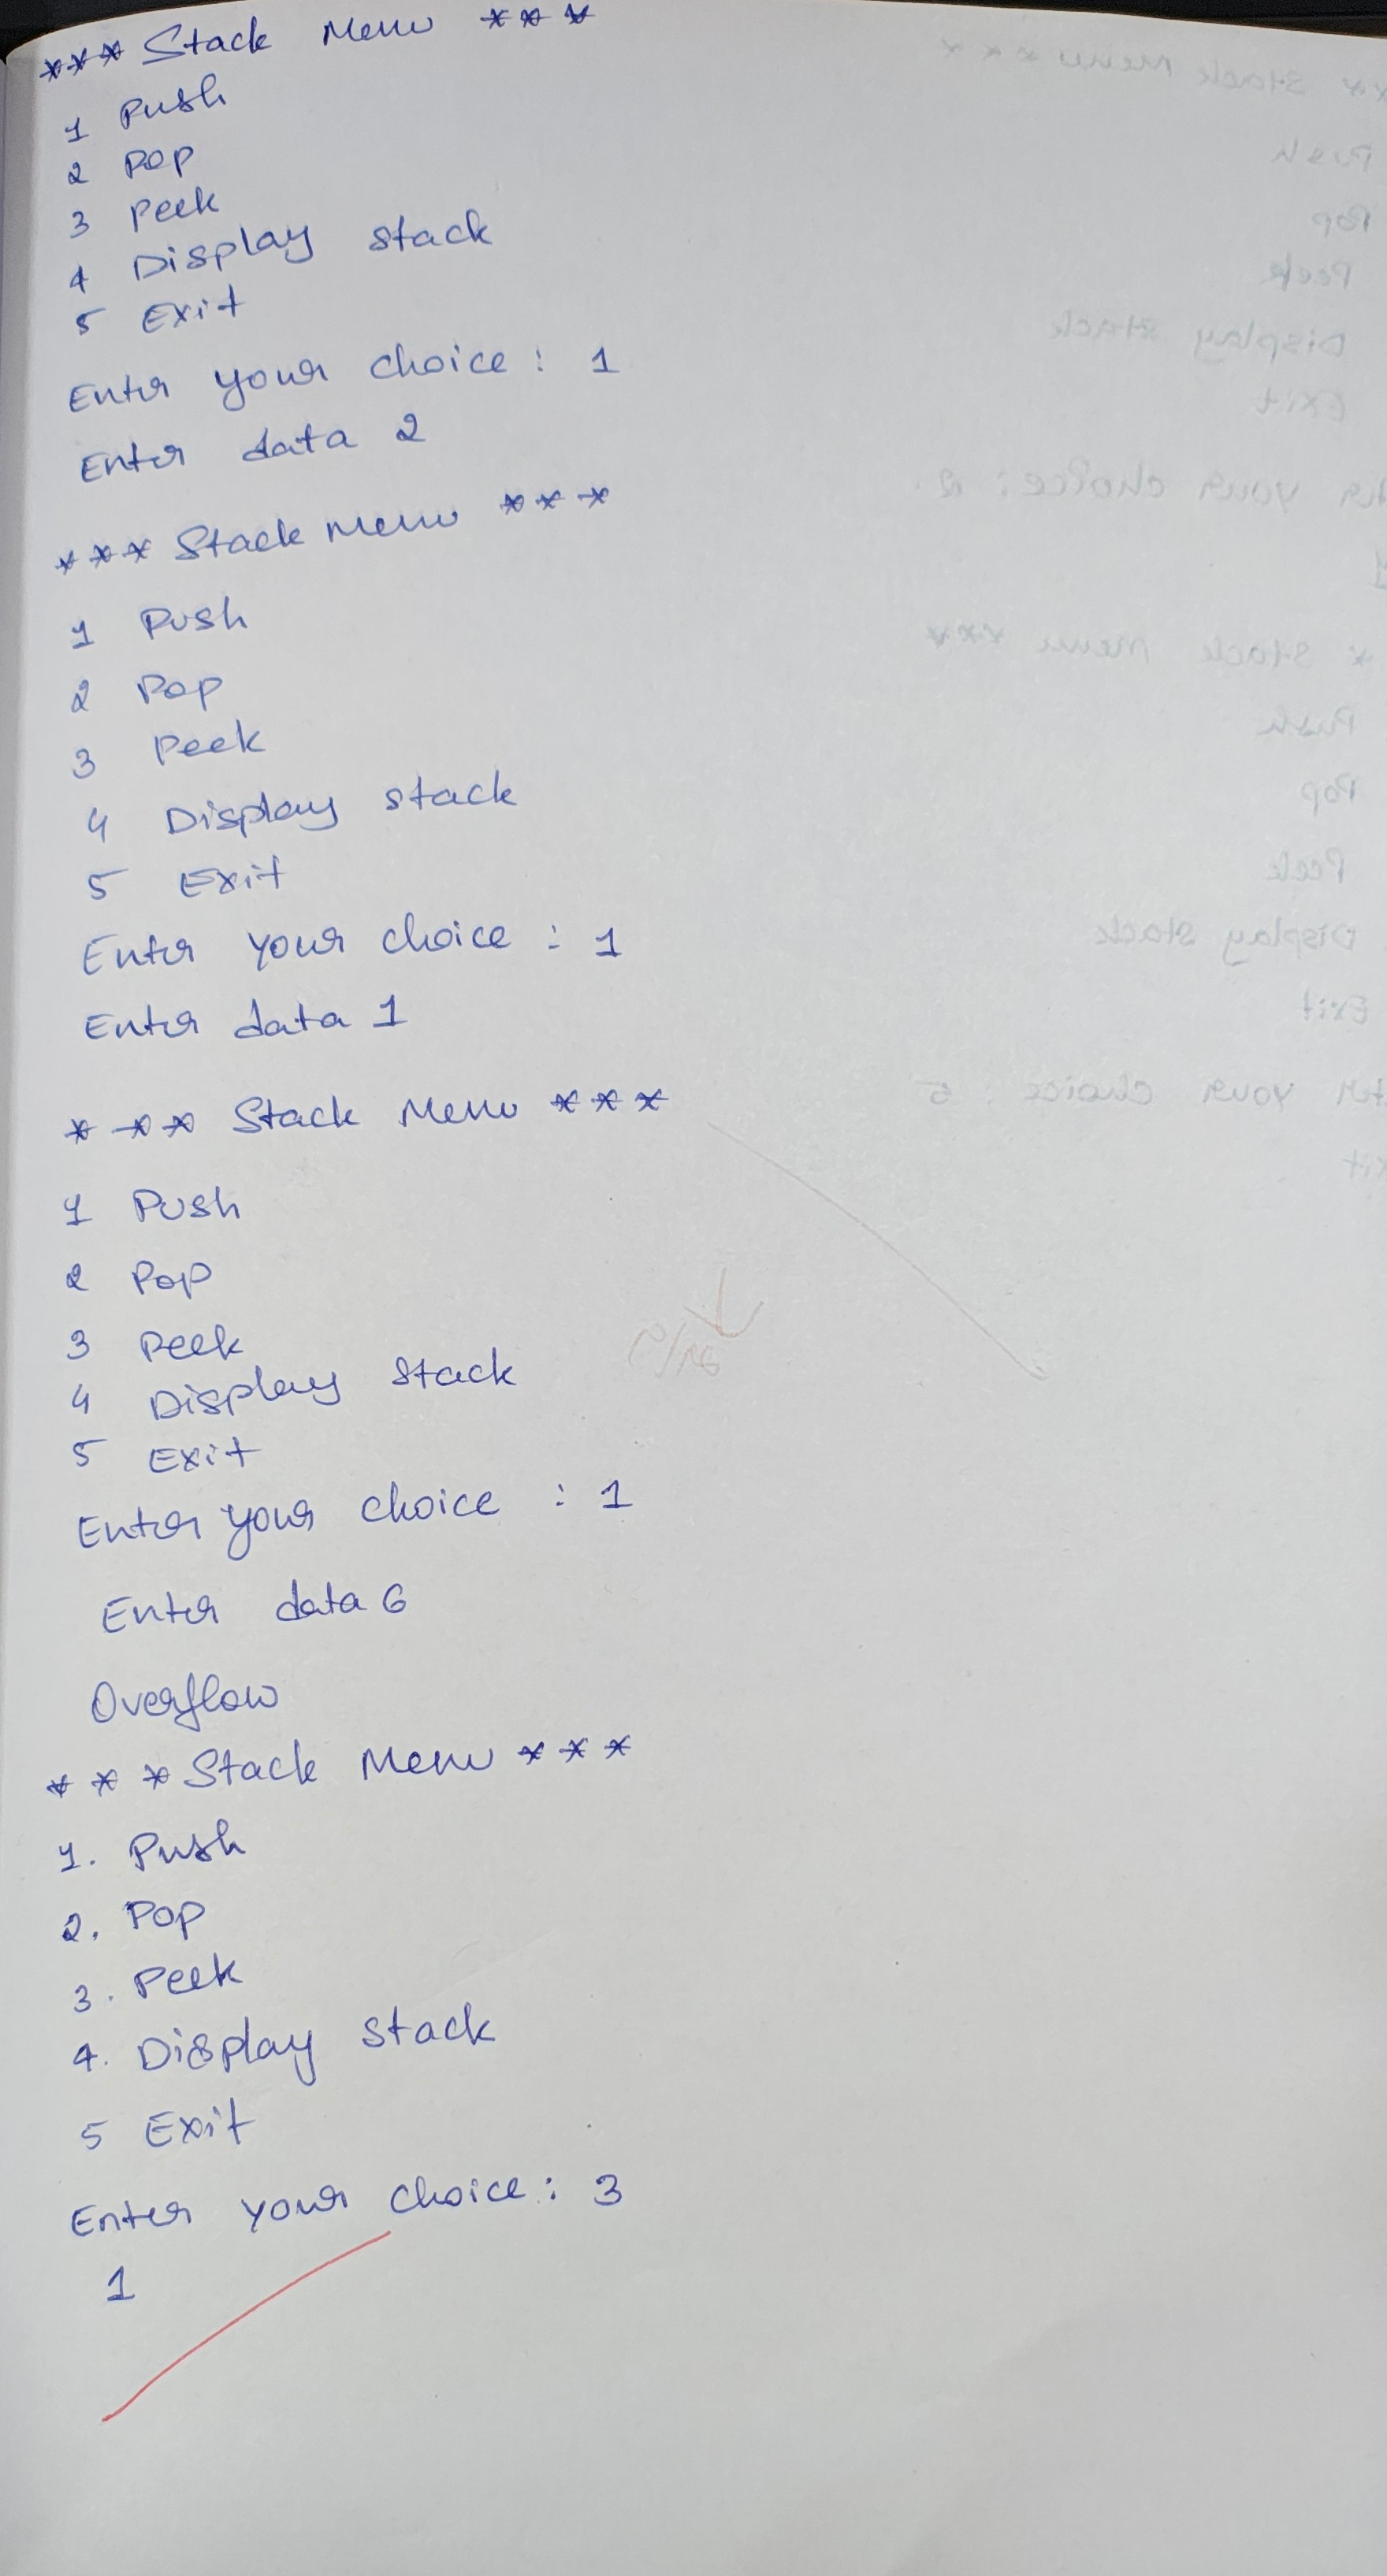 *** Stack Menu ***
1 Push
2 Pop
3 Peek
4 Display stack
5 Exit
Enter your choice : 1
Enter data 2
*** Stack Menu ***
1 Push
2 Pop
3 Peek
4 Display stack
5 Exit
Enter your choice : 1
Enter data 1
*** Stack Menu ***
1 Push
2 Pop
3 Peek
4 Display stack
5 Exit
Enter your choice : 1
Enter data 6
Overflow
*** Stack Menu ***
1. Push
2. Pop
3. Peek
4. Display stack
5 Exit
Enter your choice : 3
1